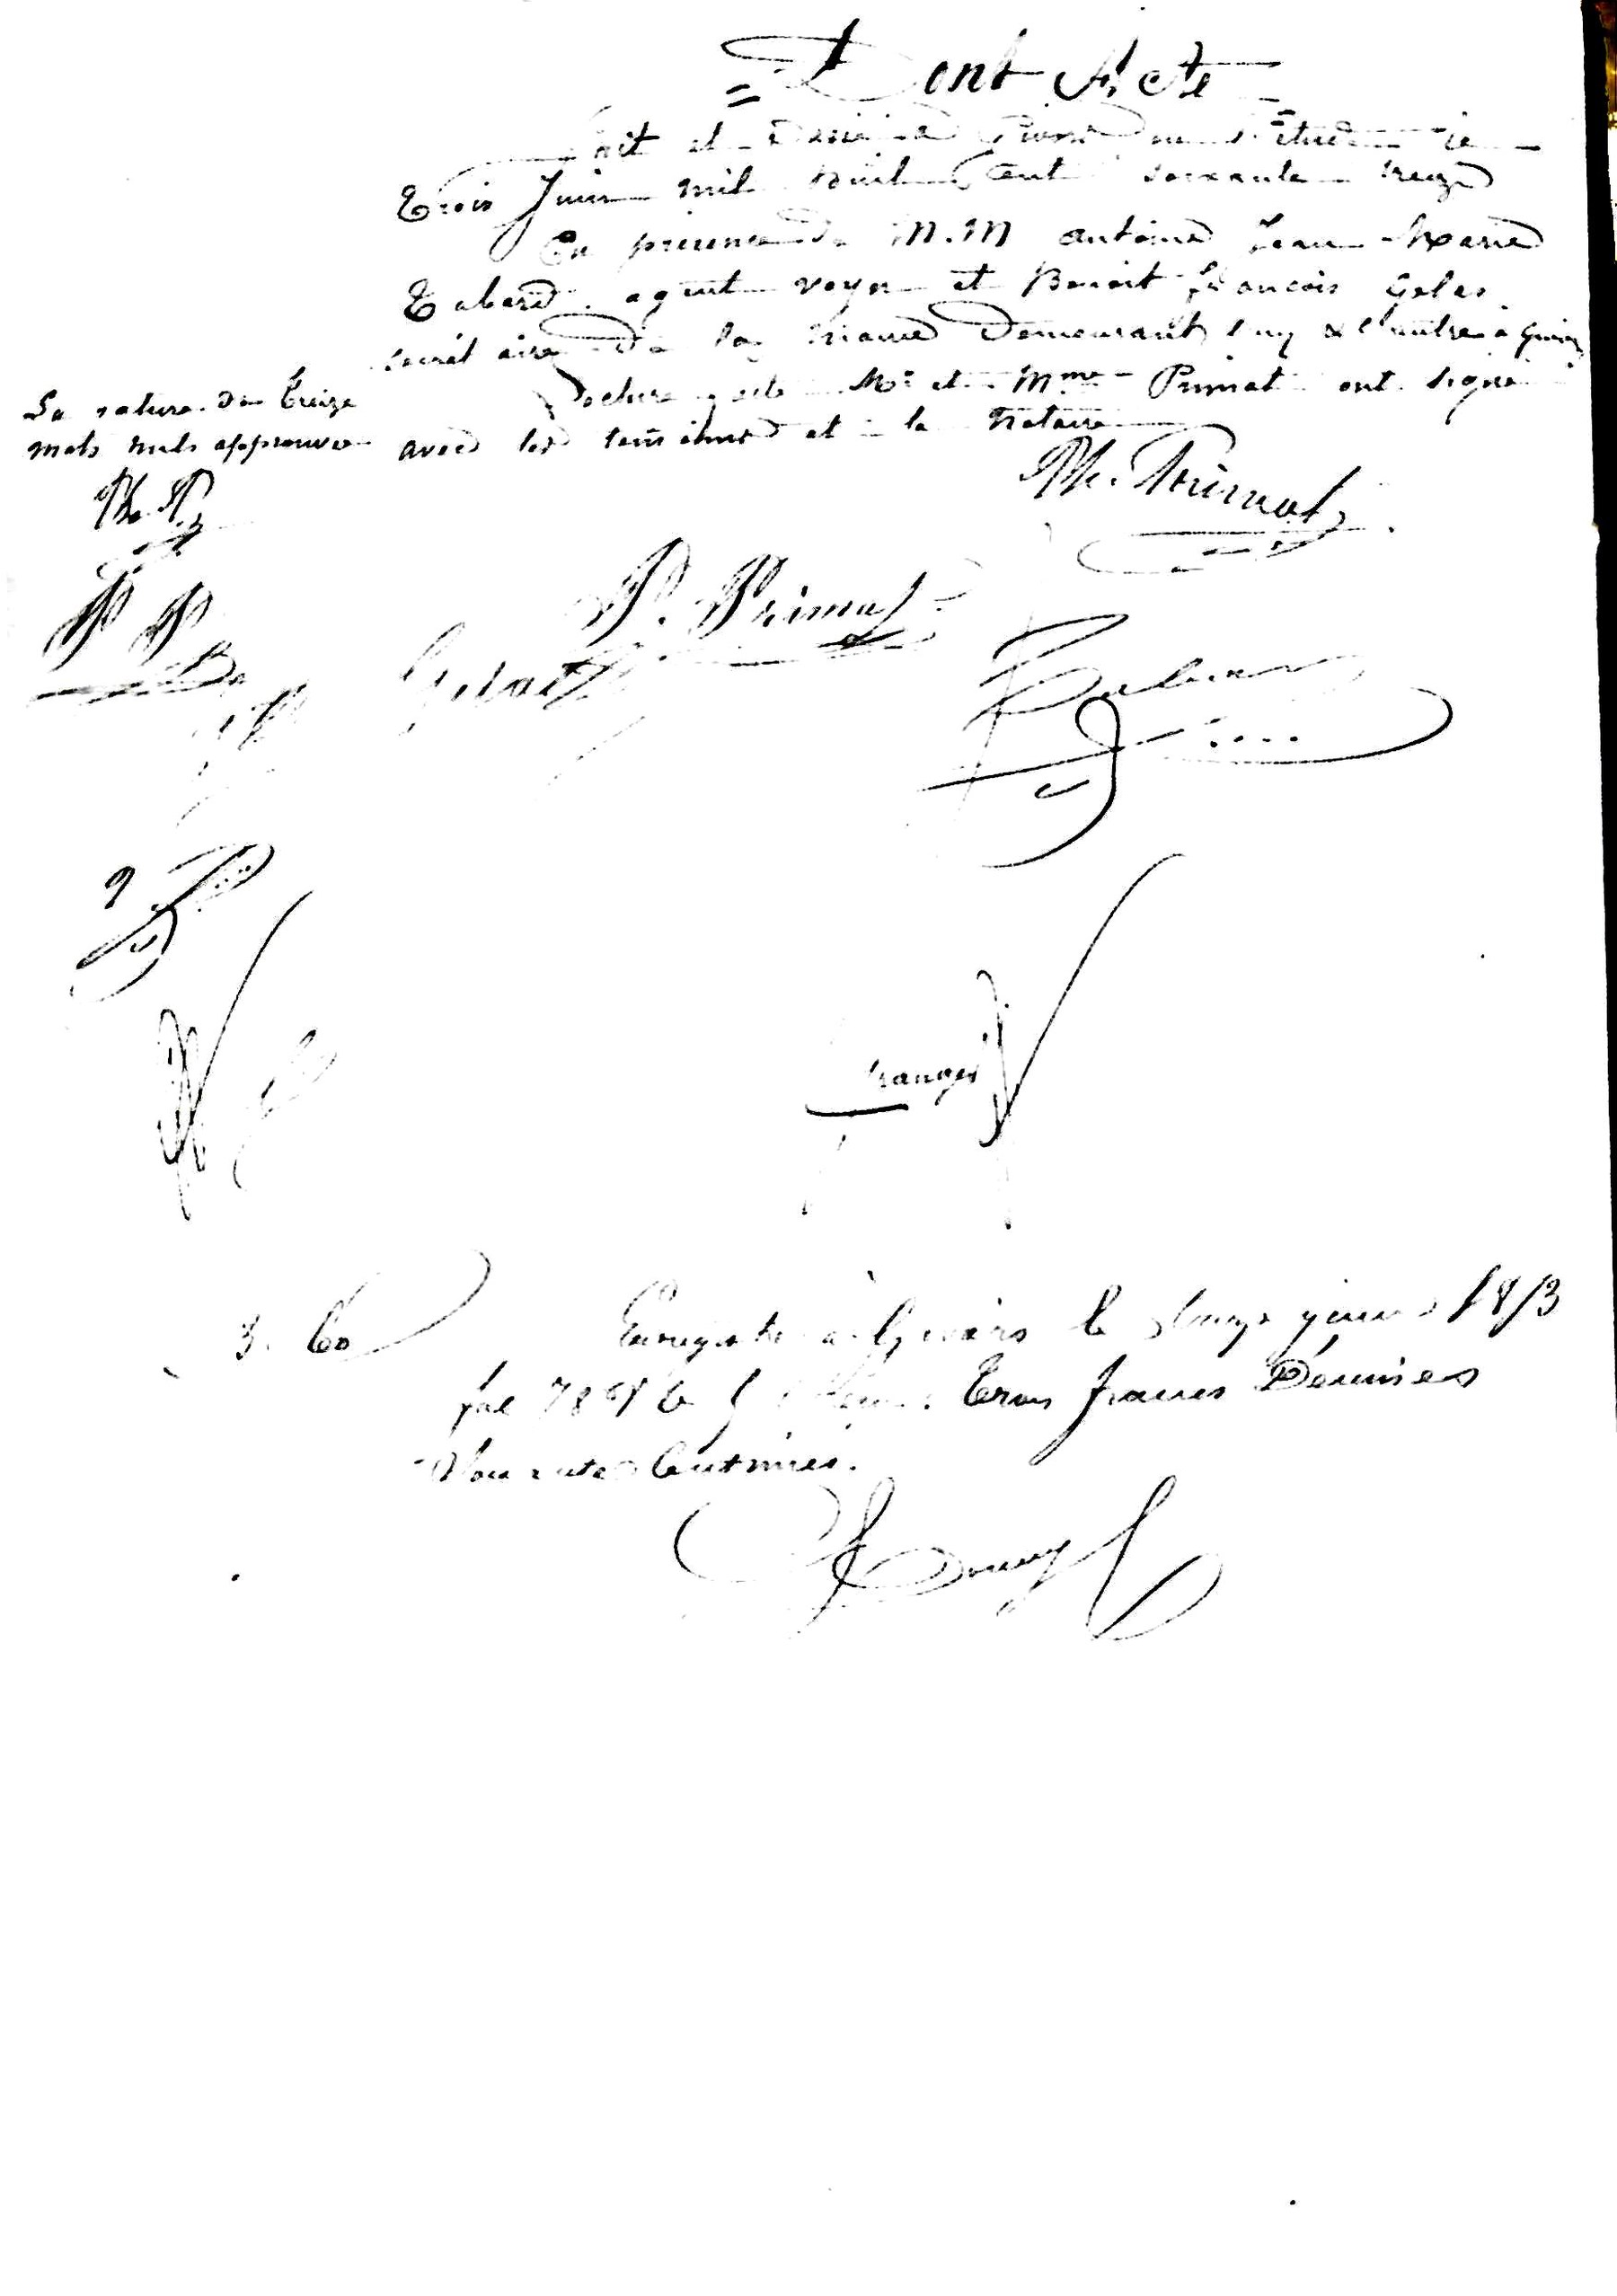 = Dont Acte =
Fait et Passé à Givors en l'étude le
Trois Juin mil huit cent soixante treize
En présence de M.M antoine Jean Marie
Tabard agent voyer et Benoit francois Gelas
secrét aire de la mairie Demeurant l'un & l'autre à Givors
Lecture faite Mr et Mme Primat ont signé
avec les témoins et le Notaire
La rature de treize
mots nuls approuvée
Ph. P
Ph. Primat
P P
P. Primat
Gelas
Tabard
3. 60
Enregistré à Givors le juin 1873
fol 78 Reçu Trois francs Décimes
Soixante Centimes.